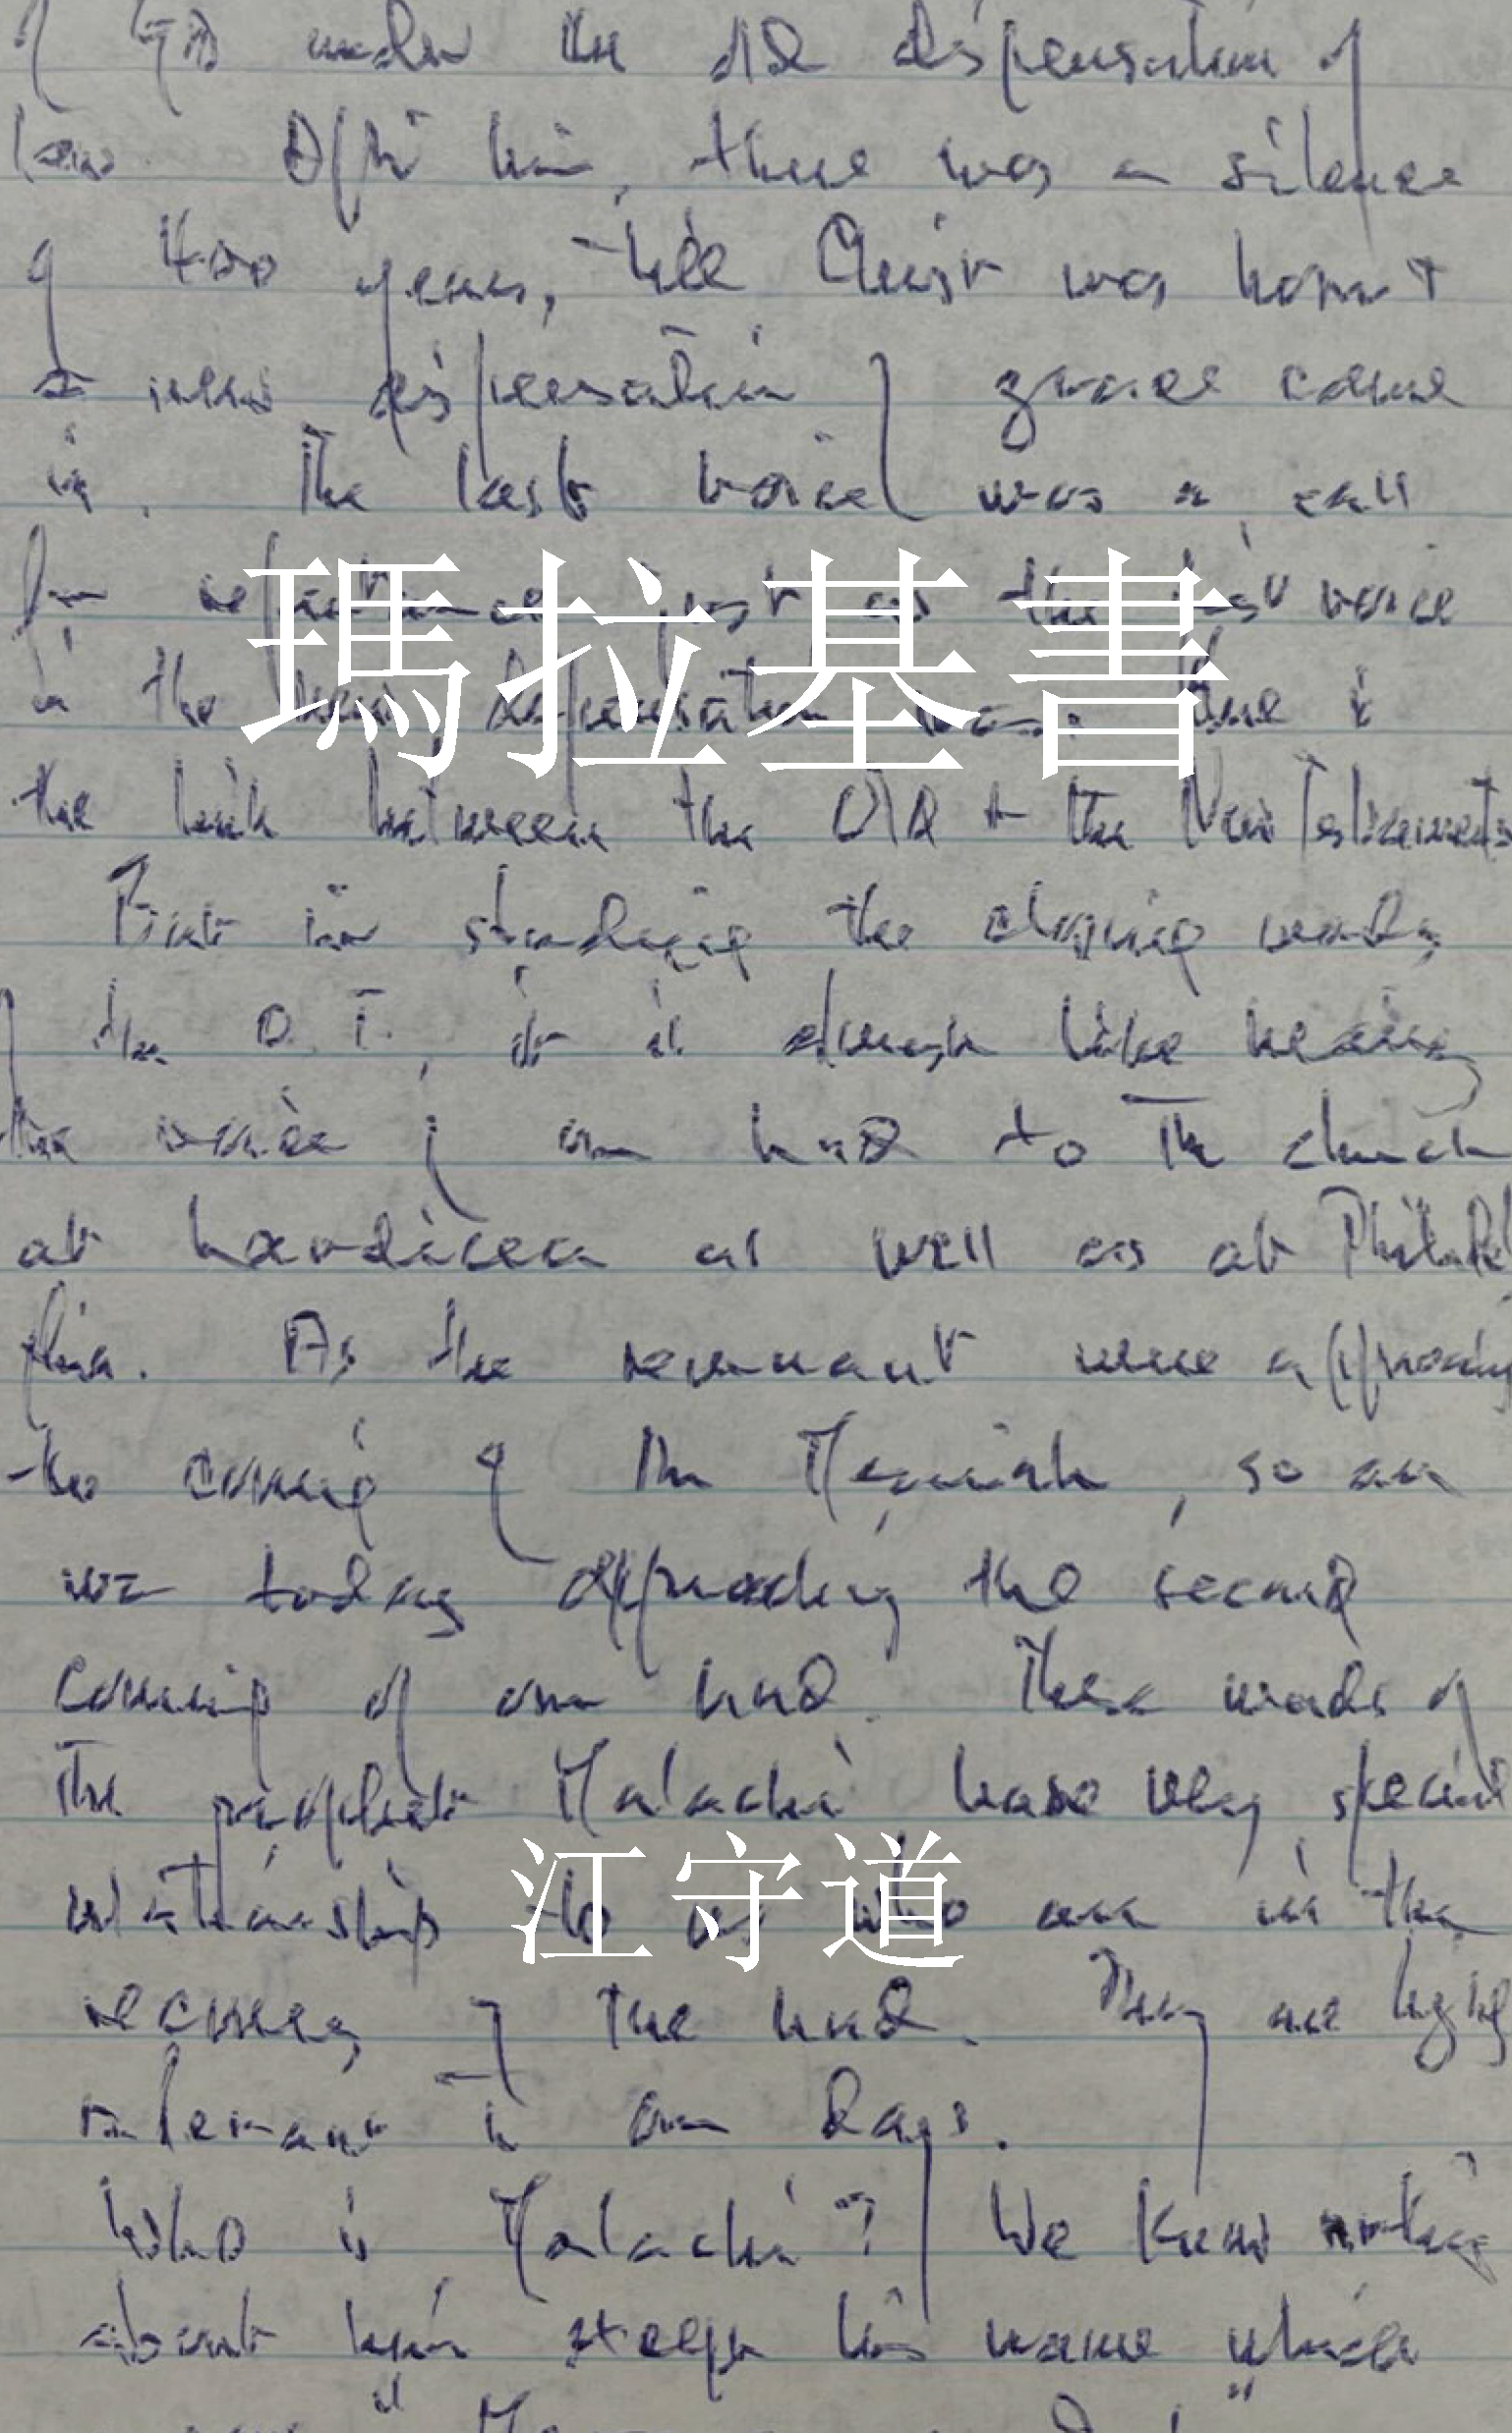 of God under the old dispensation of
law. After him, there was a silence
of 400 years, till Christ was born &
a new dispensation of grace came
in. The last voice was a call
for repentance just as the first voice
in the new dispensation was. There is
the link between the Old & the New Testaments
But in studying the closing words
of the O.T., it is almost like hearing
the voice of our Lord to the church
at Laodicea as well as at Philadel
phia. As the remnant were approaching
the coming of the Messiah, so are
we today approaching the second
coming of our Lord. These words of
瑪拉基書
The prophet Malachi have very special
relationship to us who are in the
江守道
recovery of the Lord. They are highly
relevant to our days.
Who is Malachi? We know nothing
about him except his name which